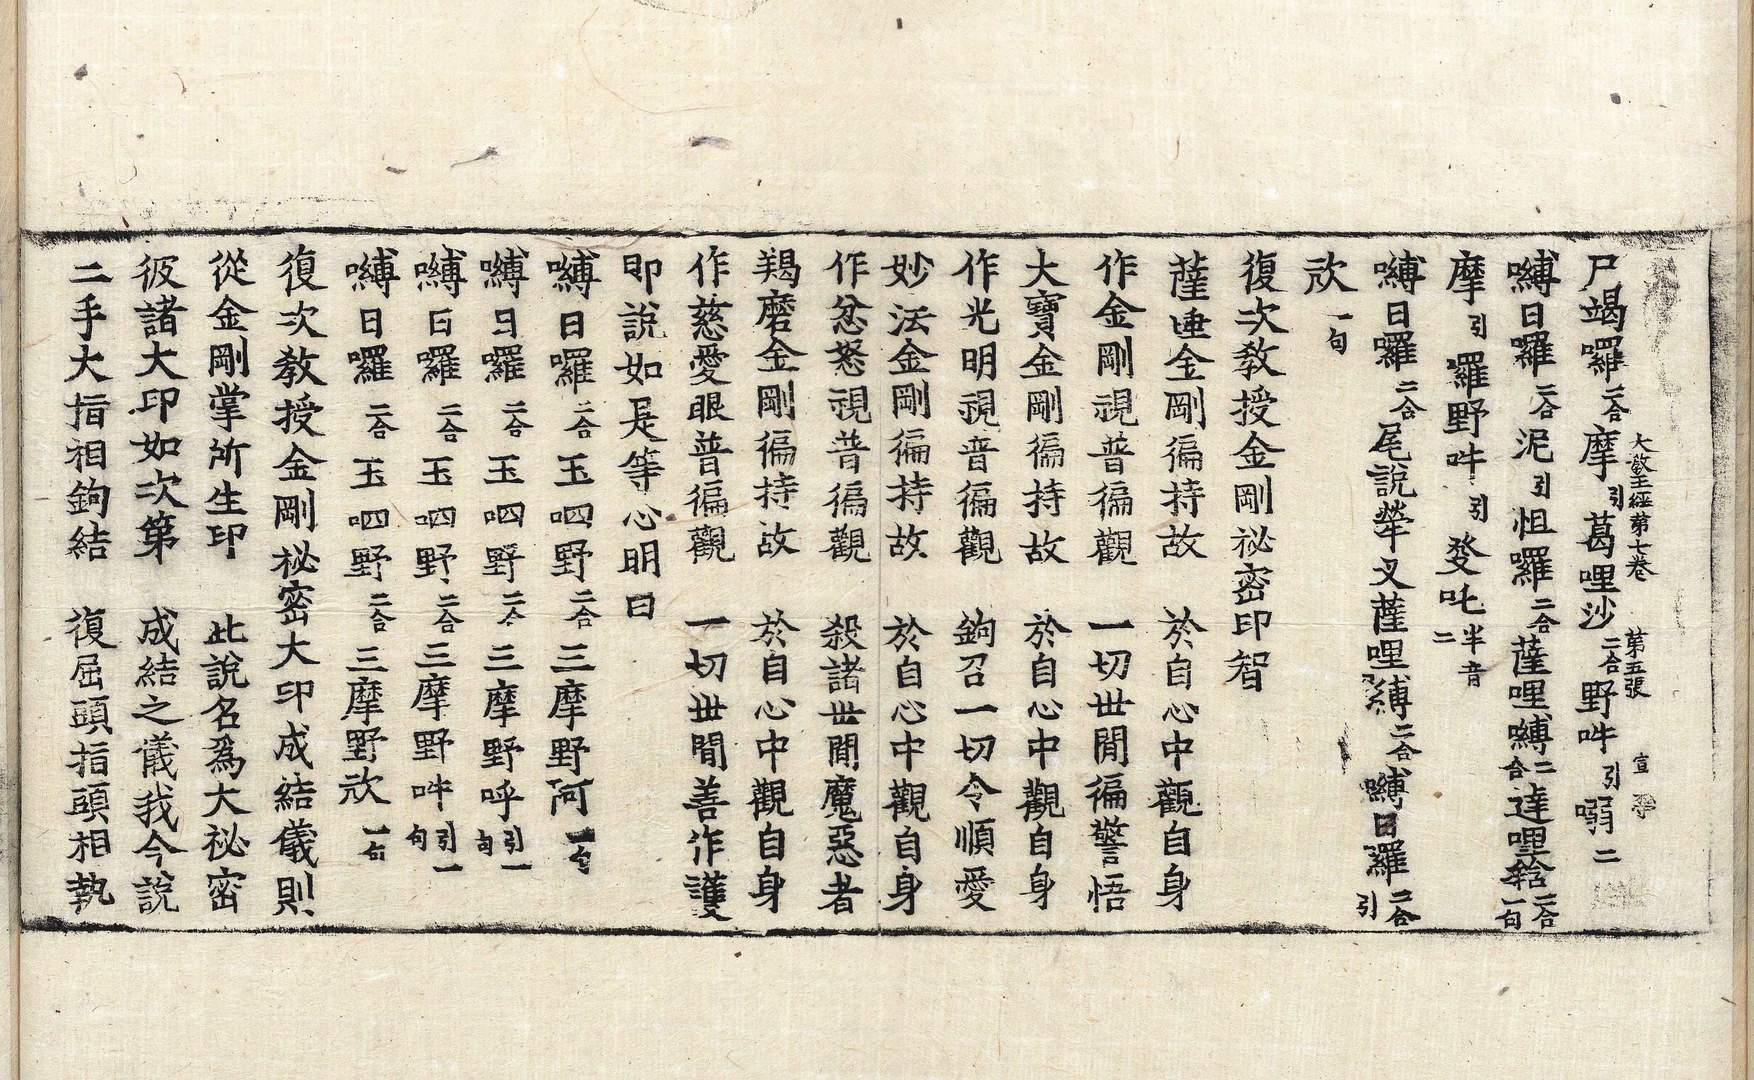 大教王經第七卷　第五張　宣
尸竭囉二合摩引葛哩沙二合野吽引嚩二
嚩日囉二合泥引怛囉二合薩哩嚩二合達哩𩐎二合一句
摩引羅野吽引發吒半音二
嚩日囉二合尾說犖叉薩哩嚩二合嚩日羅二合引
欣一句
復次教授金剛祕密印智
薩埵金剛徧持故　於自心中觀自身
作金剛視普徧觀　一切世閒徧警悟
大寶金剛徧持故　於自心中觀自身
作光明視普徧觀　鉤召一切令順愛
妙法金剛徧持故　於自心中觀自身
作忿怒視普徧觀　殺諸世閒魔惡者
羯磨金剛徧持故　於自心中觀自身
作慈愛眼普徧觀　一切世閒善作護
即說如是等心明曰
嚩日囉二合玉呬野二合三摩野阿一句
嚩日囉二合玉呬野二合三摩野呼引一句
嚩日囉二合玉呬野二合三摩野吽引一句
嚩日囉二合玉呬野二合三摩野欣一句
復次教授金剛祕密大印成結儀則
從金剛掌所生印　此說名爲大祕密
彼諸大印如次第　成結之儀我今說
二手大指相鉤結　復屈頭指頭相執